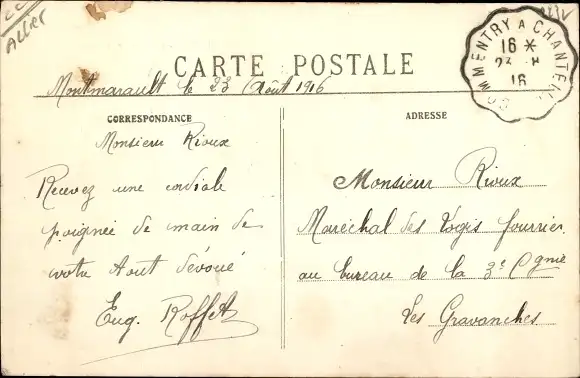 Allier
COMMENTRY A CHANTELLE
16 *
23 - 8
16
CARTE POSTALE
Montmarault le 23 Août 1916
CORRESPONDANCE
Monsieur Rioux
Recevez une cordiale
poignée de main de
votre tout dévoué
Eug. Roffet
ADRESSE
Monsieur Rioux
Maréchal des Logis fourrier
au bureau de la 3e Cgnie
Les Gravanches